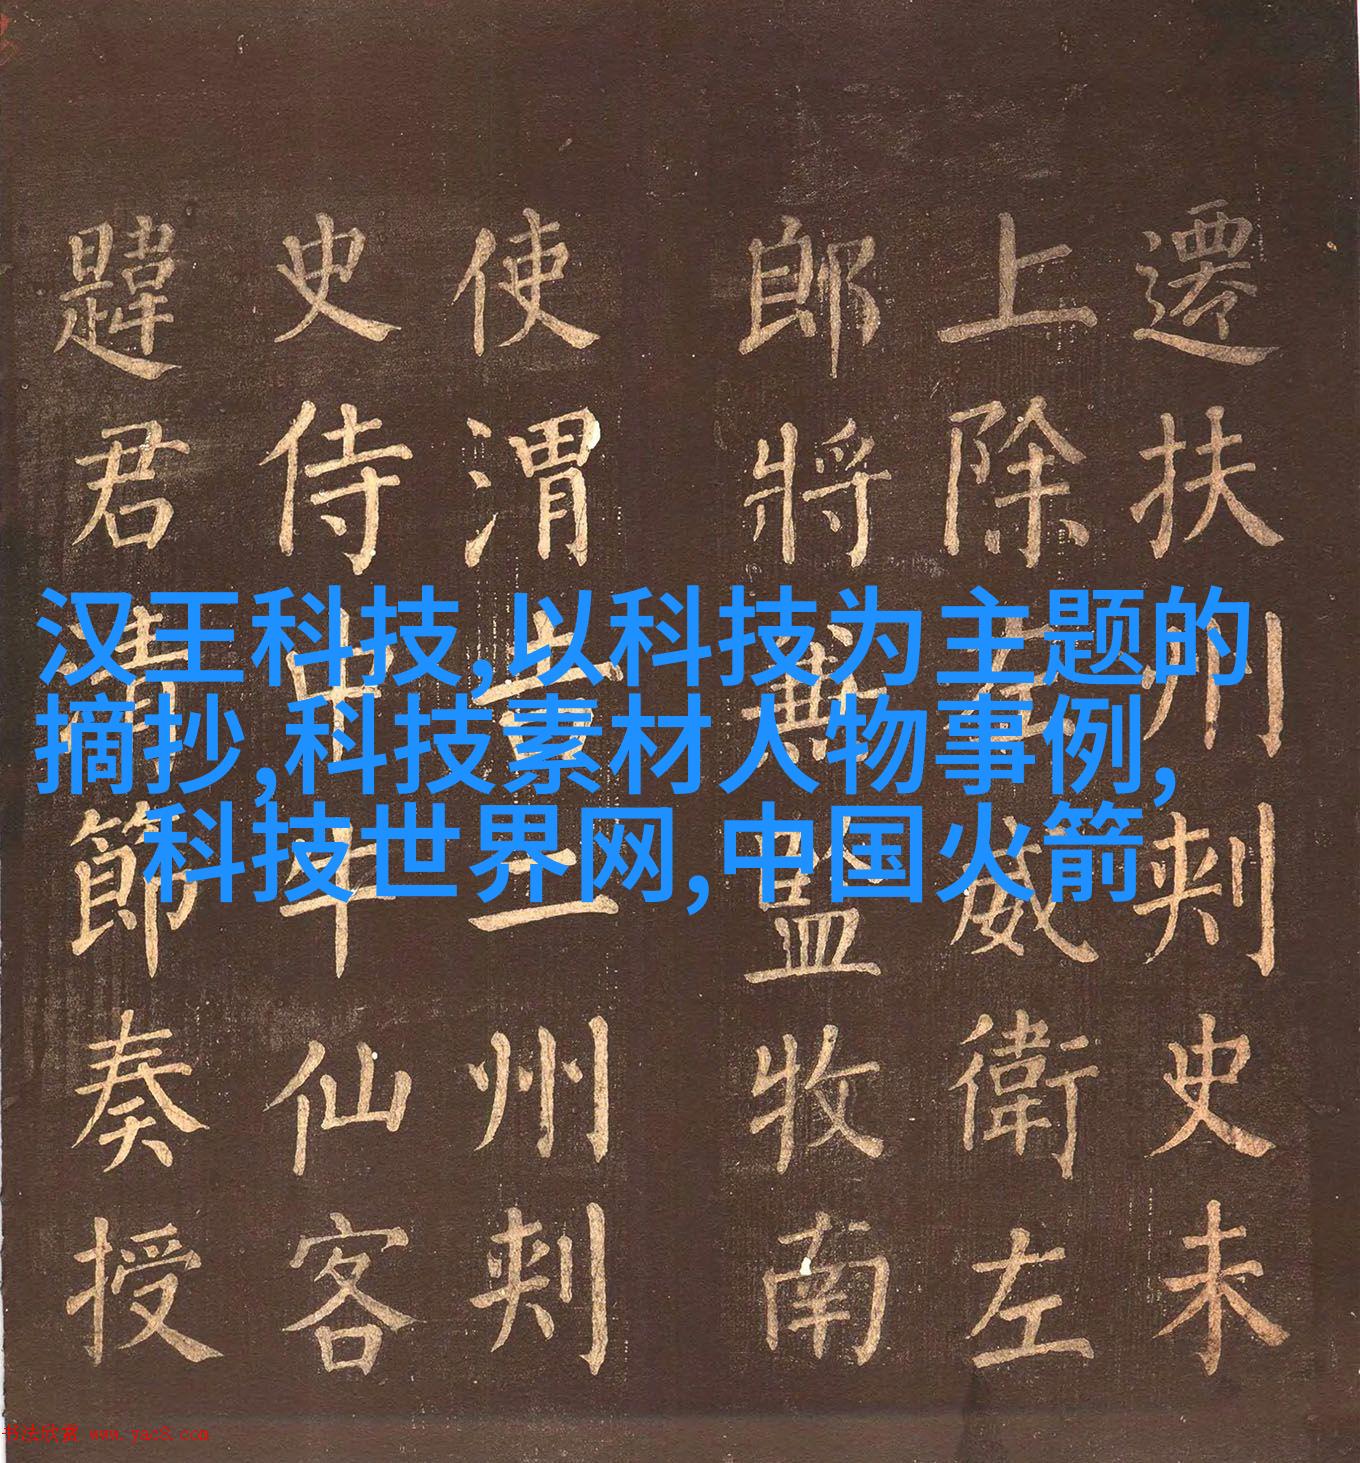 遷扶州刾史未
上除左威衛左
郎將兼監牧南
使渭吉二州刾
史侍中牛仙客
韙君清節奏授
汉王科技,以科技为主题的
摘抄,科技素材人物事例,
科技世界网,中国火箭
书法欣赏 www.yac8.com